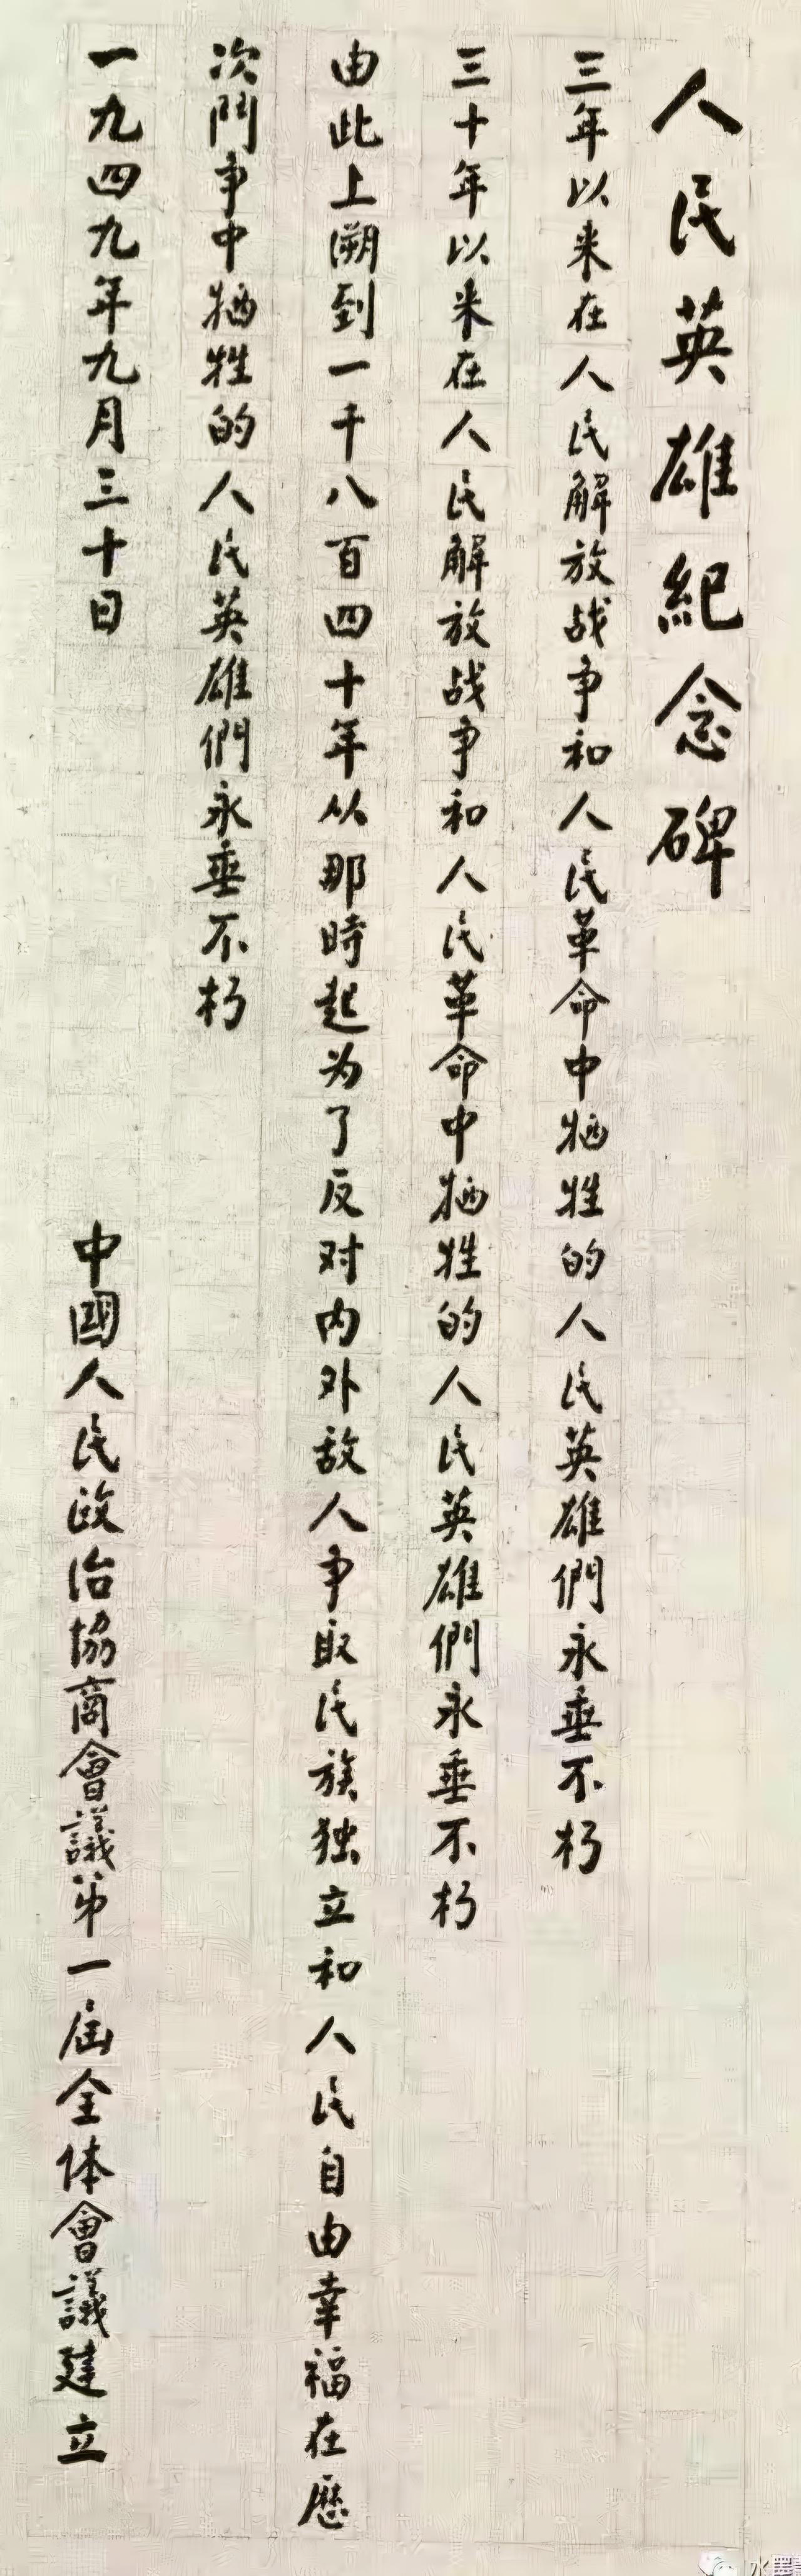 人民英雄紀念碑
三年以来在人民解放战争和人民革命中牺牲的人民英雄們永垂不朽
三十年以来在人民解放战争和人民革命中牺牲的人民英雄們永垂不朽
由此上溯到一千八百四十年从那時起为了反对内外敌人争取民族独立和人民自由幸福在歷
次鬥争中牺牲的人民英雄們永垂不朽
一九四九年九月三十日 中國人民政治協商會議第一届全体會議建立
水墨